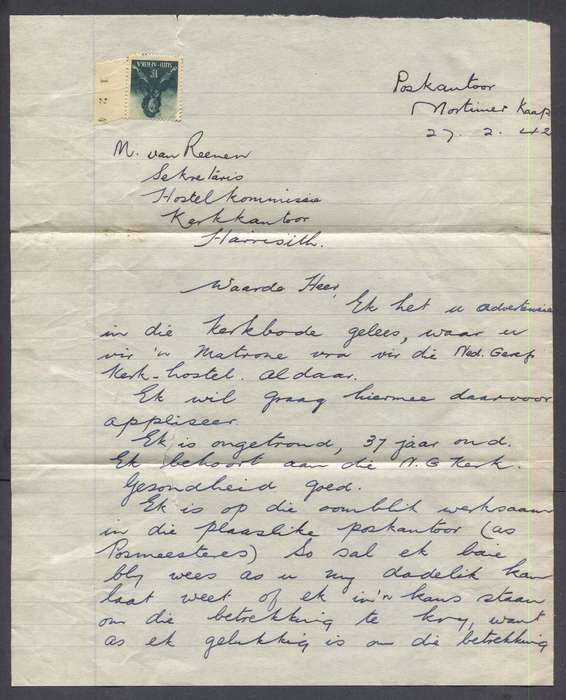 SUID-AFRIKA
Poskantoor
Mortimer Kaap
27. 2. 42
M. van Reenen
Sekretaris
Hostelkommissie
Kerkkantoor
Harrismith.
Waarde Heer,
Ek het u advertensie
in die Kerkbode gelees, waar u
vir 'n Matrone vra vir die Ned. Geref
Kerk-hostel. Aldaar.
Ek wil graag hiermee daarvoor
appliseer.
Ek is ongetroud, 37 jaar oud.
Ek behoort aan die N.G Kerk.
Gesondheid goed.
Ek is op die oomblik werksaam
in die plaaslike poskantoor (as
Posmeesteres) So sal ek baie
bly wees as u my dadelik kan
laat weet of ek in 'n kans staan
om die betrekking te kry, want
as ek gelukkig is om die betrekking